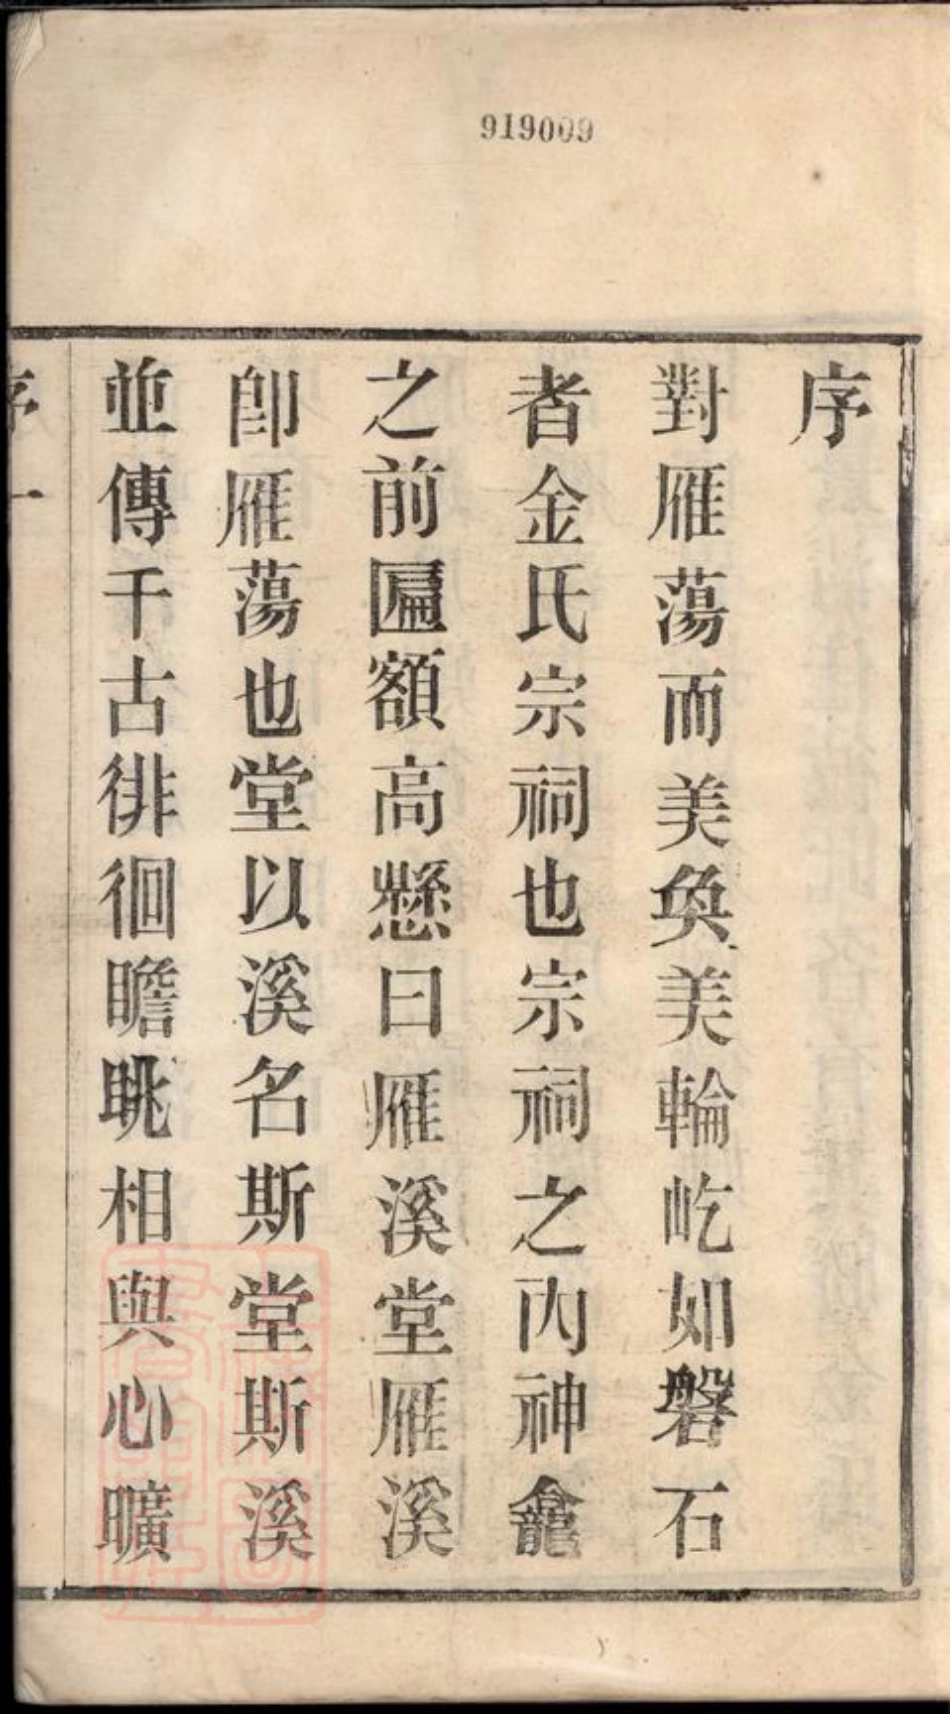 919009
序
對雁蕩而美奐美輪屹如磐石
者金氏宗祠也宗祠之內神龕
之前匾額高懸曰雁溪堂雁溪
卽雁蕩也堂以溪名斯堂斯溪
並傳千古徘徊瞻眺相與心曠
序 一